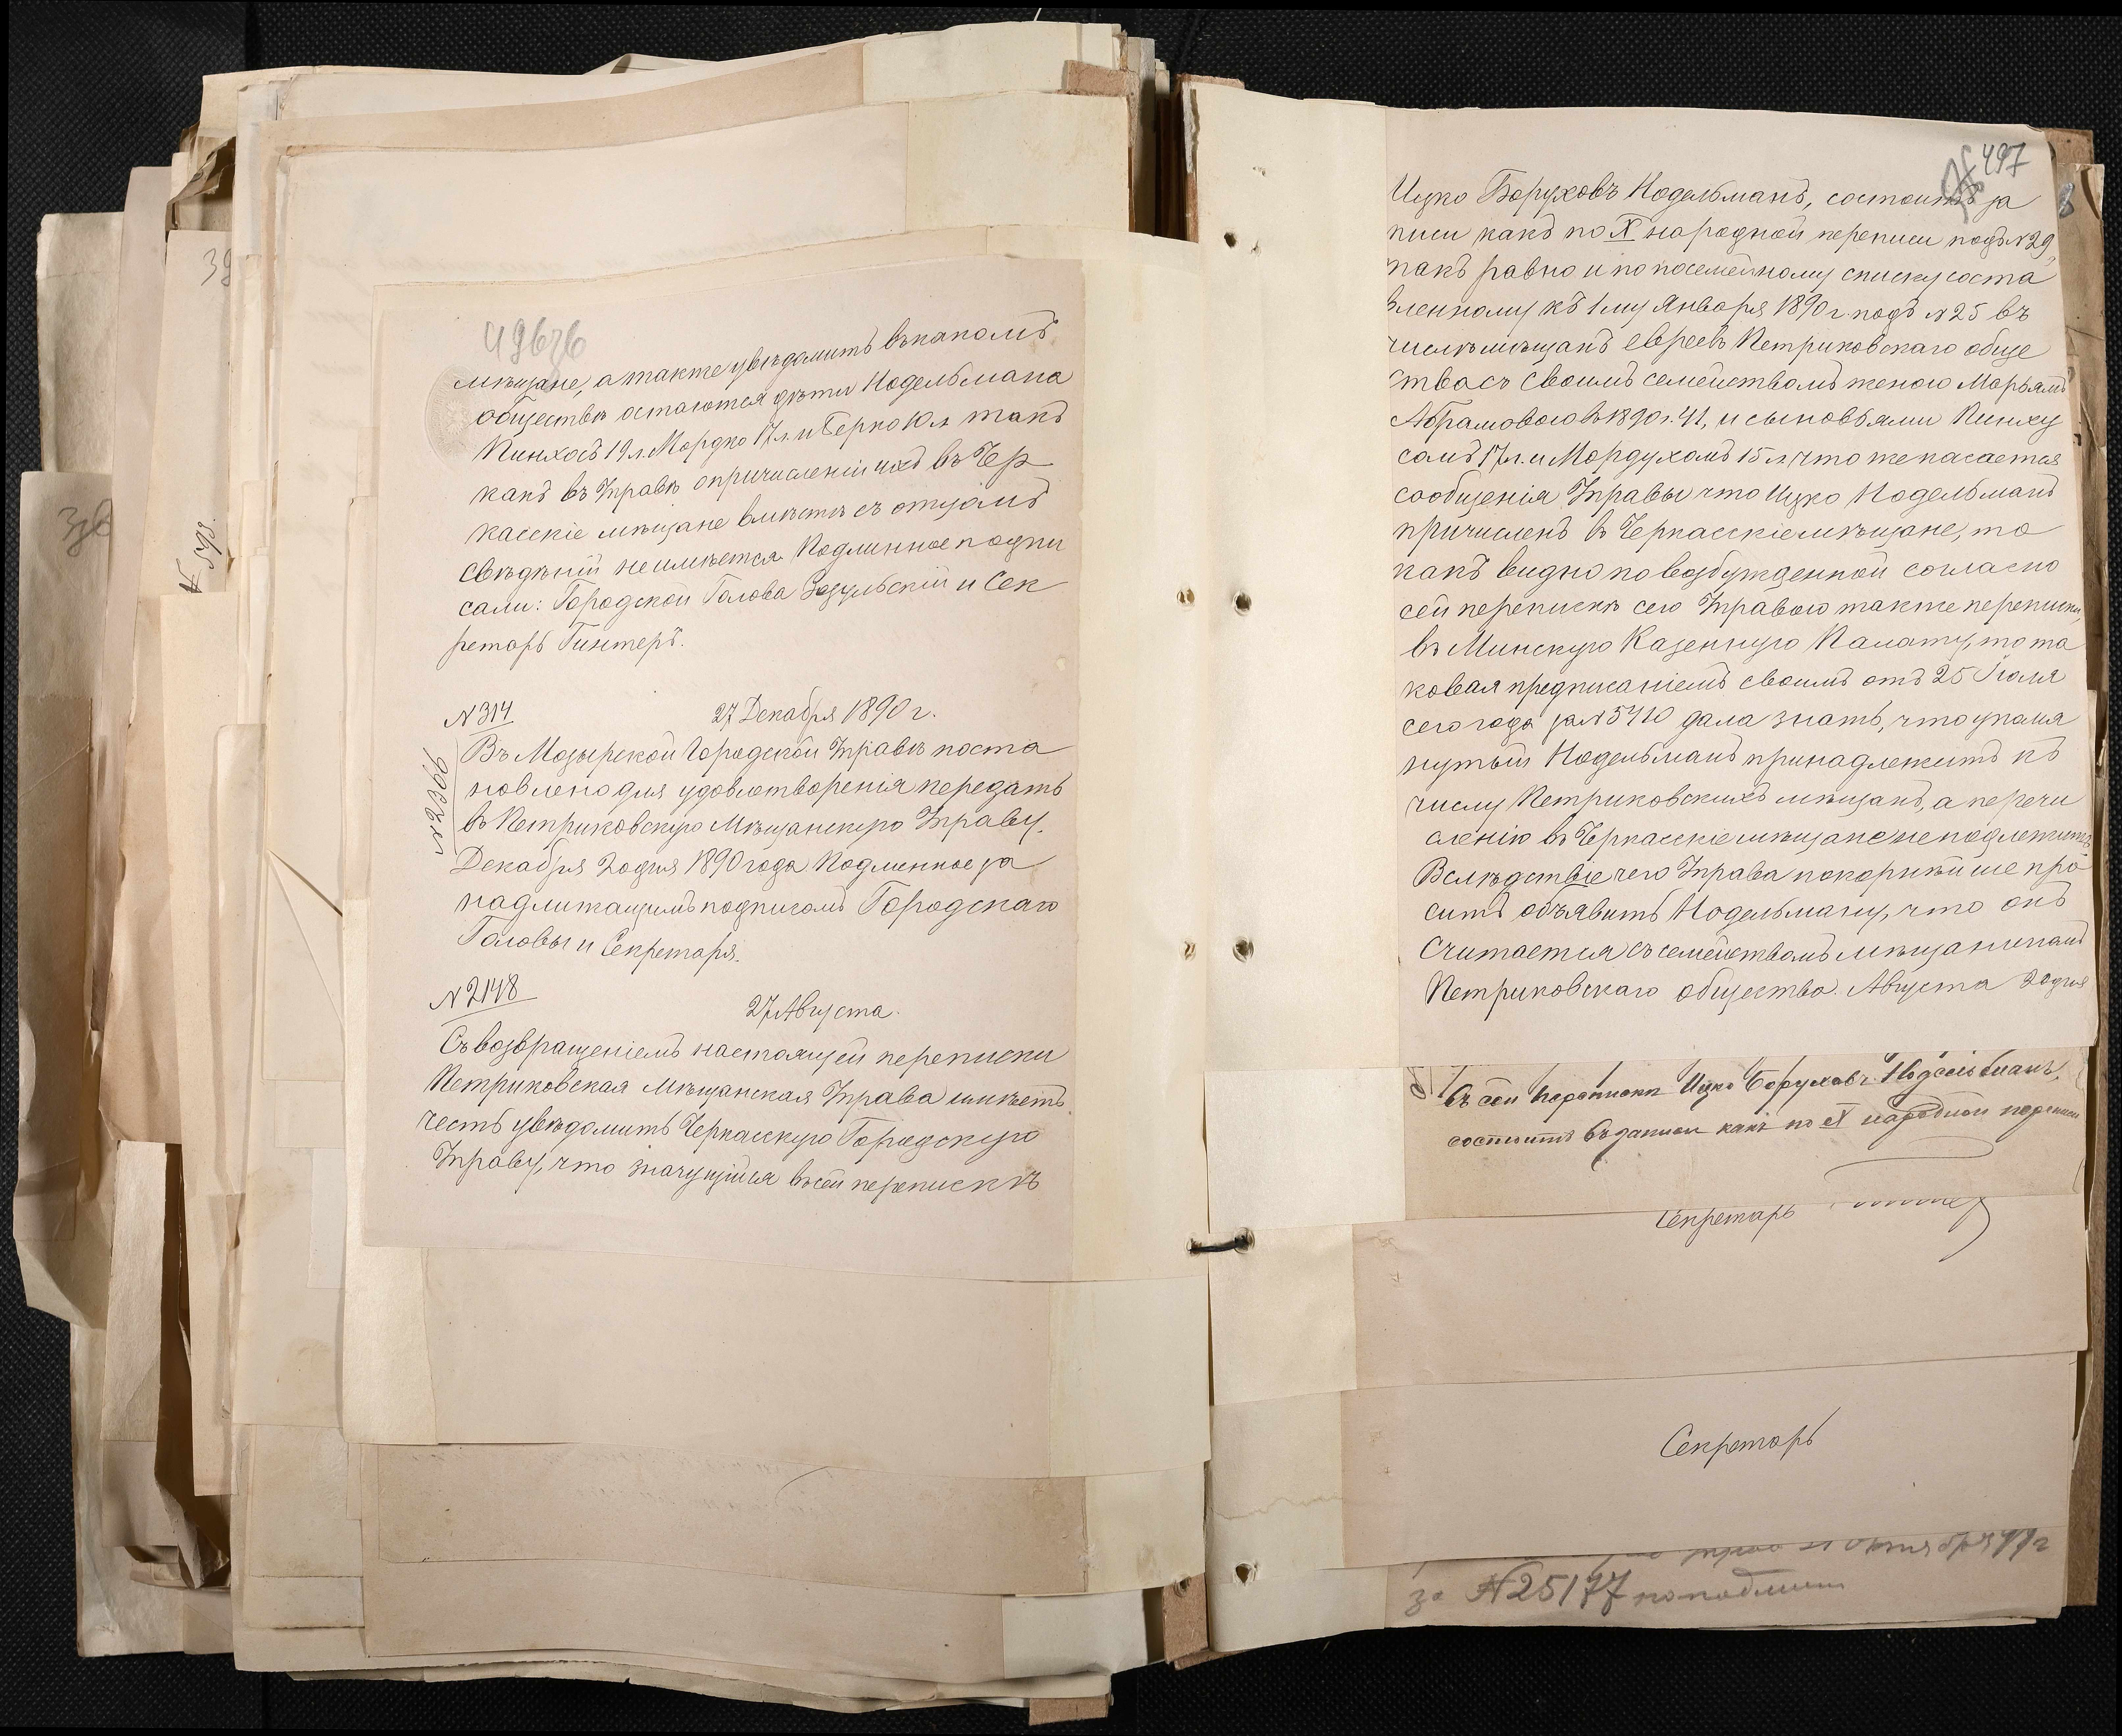 496об
мѣщане, а также увѣдомить въ какомъ
обществѣ остаются дѣти Нодельмана
Пинхосъ 19 л. Мордко 17 л. и Берко 10 л. такъ
какъ въ Управѣ о причисленіи ихъ въ Чер
касскіе мѣщане вмѣстѣ съ отцомъ
свѣдѣній не имѣется. Подлинное подпи
сали: Городской Голова Зозульскій и Сек
ретарь Гинтеръ.
N 314 27 Декабря 1890 г.
N 2366
Въ Мозырской Городской Управѣ поста
новлено для удовлетворенія передать
въ Петриковскую Мѣщанскую Управу.
Декабря 20 дня 1890 года Подлинное за
надлежащимъ подписомъ Городскаго
Головы и Секретаря.
N 2148
27 Августа.
Съ возвращеніемъ настоящей переписки
Петриковская Мѣщанская Управа имѣетъ
честь увѣдомить Черкасскую Городскую
Управу, что значущійся въ сей перепискѣ
497
Ицко Боруховъ Нодельманъ, состоитъ за
писи какъ по X народной переписи подъ N 29,
такъ равно и по посемейному списку соста
вленному къ 1 му Января 1890 г. подъ N 25 въ
числѣ мѣщанъ евреевъ Петриковскаго обще
ства съ своимъ семействомъ женою Марьямъ
Абрамовою въ 1890 г. 41, и сыновьями Пинху
сомъ 17 л. и Мордухомъ 15 л. что же касается
сообщенія Управы что Ицко Нодельманъ
причисленъ въ Черкасскіе мѣщане, то
какъ видно по возбужденной согласно
сей перепискѣ сею Управою также переписки,
въ Минскую Казенную Палату, то та
ковая предписаніемъ своимъ отъ 25 Іюля
сего года за N 5410 дала знать, что упомя
нутый Нодельманъ принадлежитъ къ
числу Петриковскихъ мѣщанъ, а перечи
сленію въ Черкасскіе мѣщане не подлежитъ
Вслѣдствіе чего Управа покорнѣйше про
ситъ объявить Нодельману, что онъ
считается съ семействомъ мѣщаниномъ
Петриковскаго общества. Августа 20 дня
въ сей перепискѣ Ицко Боруховъ Нодельманъ,
состоитъ въ записи какъ по X народной переписи
Секретарь
Секретарь
октября 91 г
за N 25177